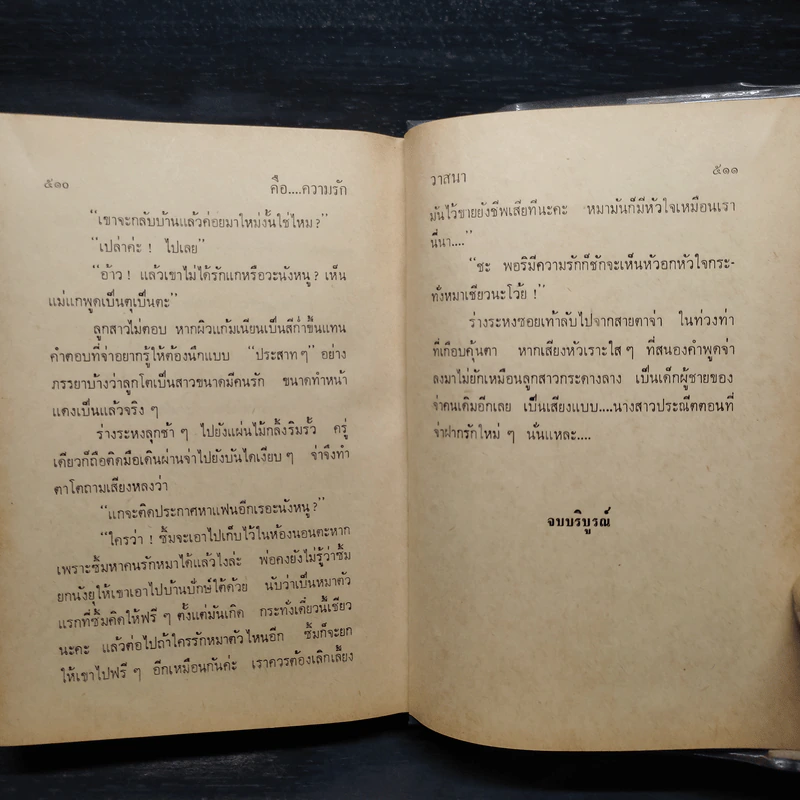 ๕๑๐
คือ....ความรัก
“เขาจะกลับบ้านแล้วค่อยมาใหม่งั้นใช่ไหม?”
“เปล่าค่ะ! ไปเลย”
“อ้าว! แล้วเขาไม่ได้รักแกหรือวะนังหนู? เห็น
แม่แกพูดเป็นตุเป็นตะ”
ลูกสาวไม่ตอบ หากผิวแก้มเนียนเป็นสีก่ำขึ้นแทน
คำตอบที่จ่าอยากรู้ให้ต้องนึกแบบ “ประสาทๆ” อย่าง
ภรรยาบ้างว่าลูกโตเป็นสาวขนาดมีคนรัก ขนาดทำหน้า
แดงเป็นแล้วจริง ๆ
ร่างระหงลุกช้า ๆ ไปยังแผ่นไม้กลิ้งริมรั้ว ครู่
เดียวก็ถือติดมือเดินผ่านจ่าไปยังบันไดเงียบๆ จ่าจึงทำ
ตาโตถามเสียงหลงว่า
“แกจะติดประกาศหาแฟนอีกเรอะนังหนู?”
“ใครว่า! ซิ้มจะเอาไปเก็บไว้ในห้องนอนตะหาก
เพราะซิ้มหาคนรักหมาได้แล้วไงล่ะ พ่อคงยังไม่รู้ว่าซิ้ม
ยกนังยุให้เขาเอาไปบ้านปักษ์ใต้ด้วย นับว่าเป็นหมาตัว
แรกที่ซิ้มคิดให้ฟรี ๆ ตั้งแต่มันเกิด กระทั่งเดี๋ยวนี้เชียว
นะคะ แล้วต่อไปถ้าใครรักหมาตัวไหนอีก ซิ้มก็จะยก
ให้เขาไปฟรี ๆ อีกเหมือนกันค่ะ เราควรต้องเลิกเลี้ยง
วาสนา
๕๑๑
มันไว้ขายยังชีพเสียทีนะคะ หมามันก็มีหัวใจเหมือนเรา
นี่นา....”
“ชะ พอริมีความรักก็ชักจะเห็นหัวอกหัวใจกระ-
ทั่งหมาเชียวนะโว้ย!”
ร่างระหงซอยเท้าลับไปจากสายตาจ่า ในท่วงท่า
ที่เกือบคุ้นตา หากเสียงหัวเราะใสๆ ที่สนองคำพูดจ่า
ลงมาไม่ยักเหมือนลูกสาวกระดางลาง เป็นเด็กผู้ชายของ
จ่าคนเดิมอีกเลย เป็นเสียงแบบ....นางสาวประณีตตอนที่
จ่าฝากรักใหม่ ๆ นั่นแหละ....
จบบริบูรณ์